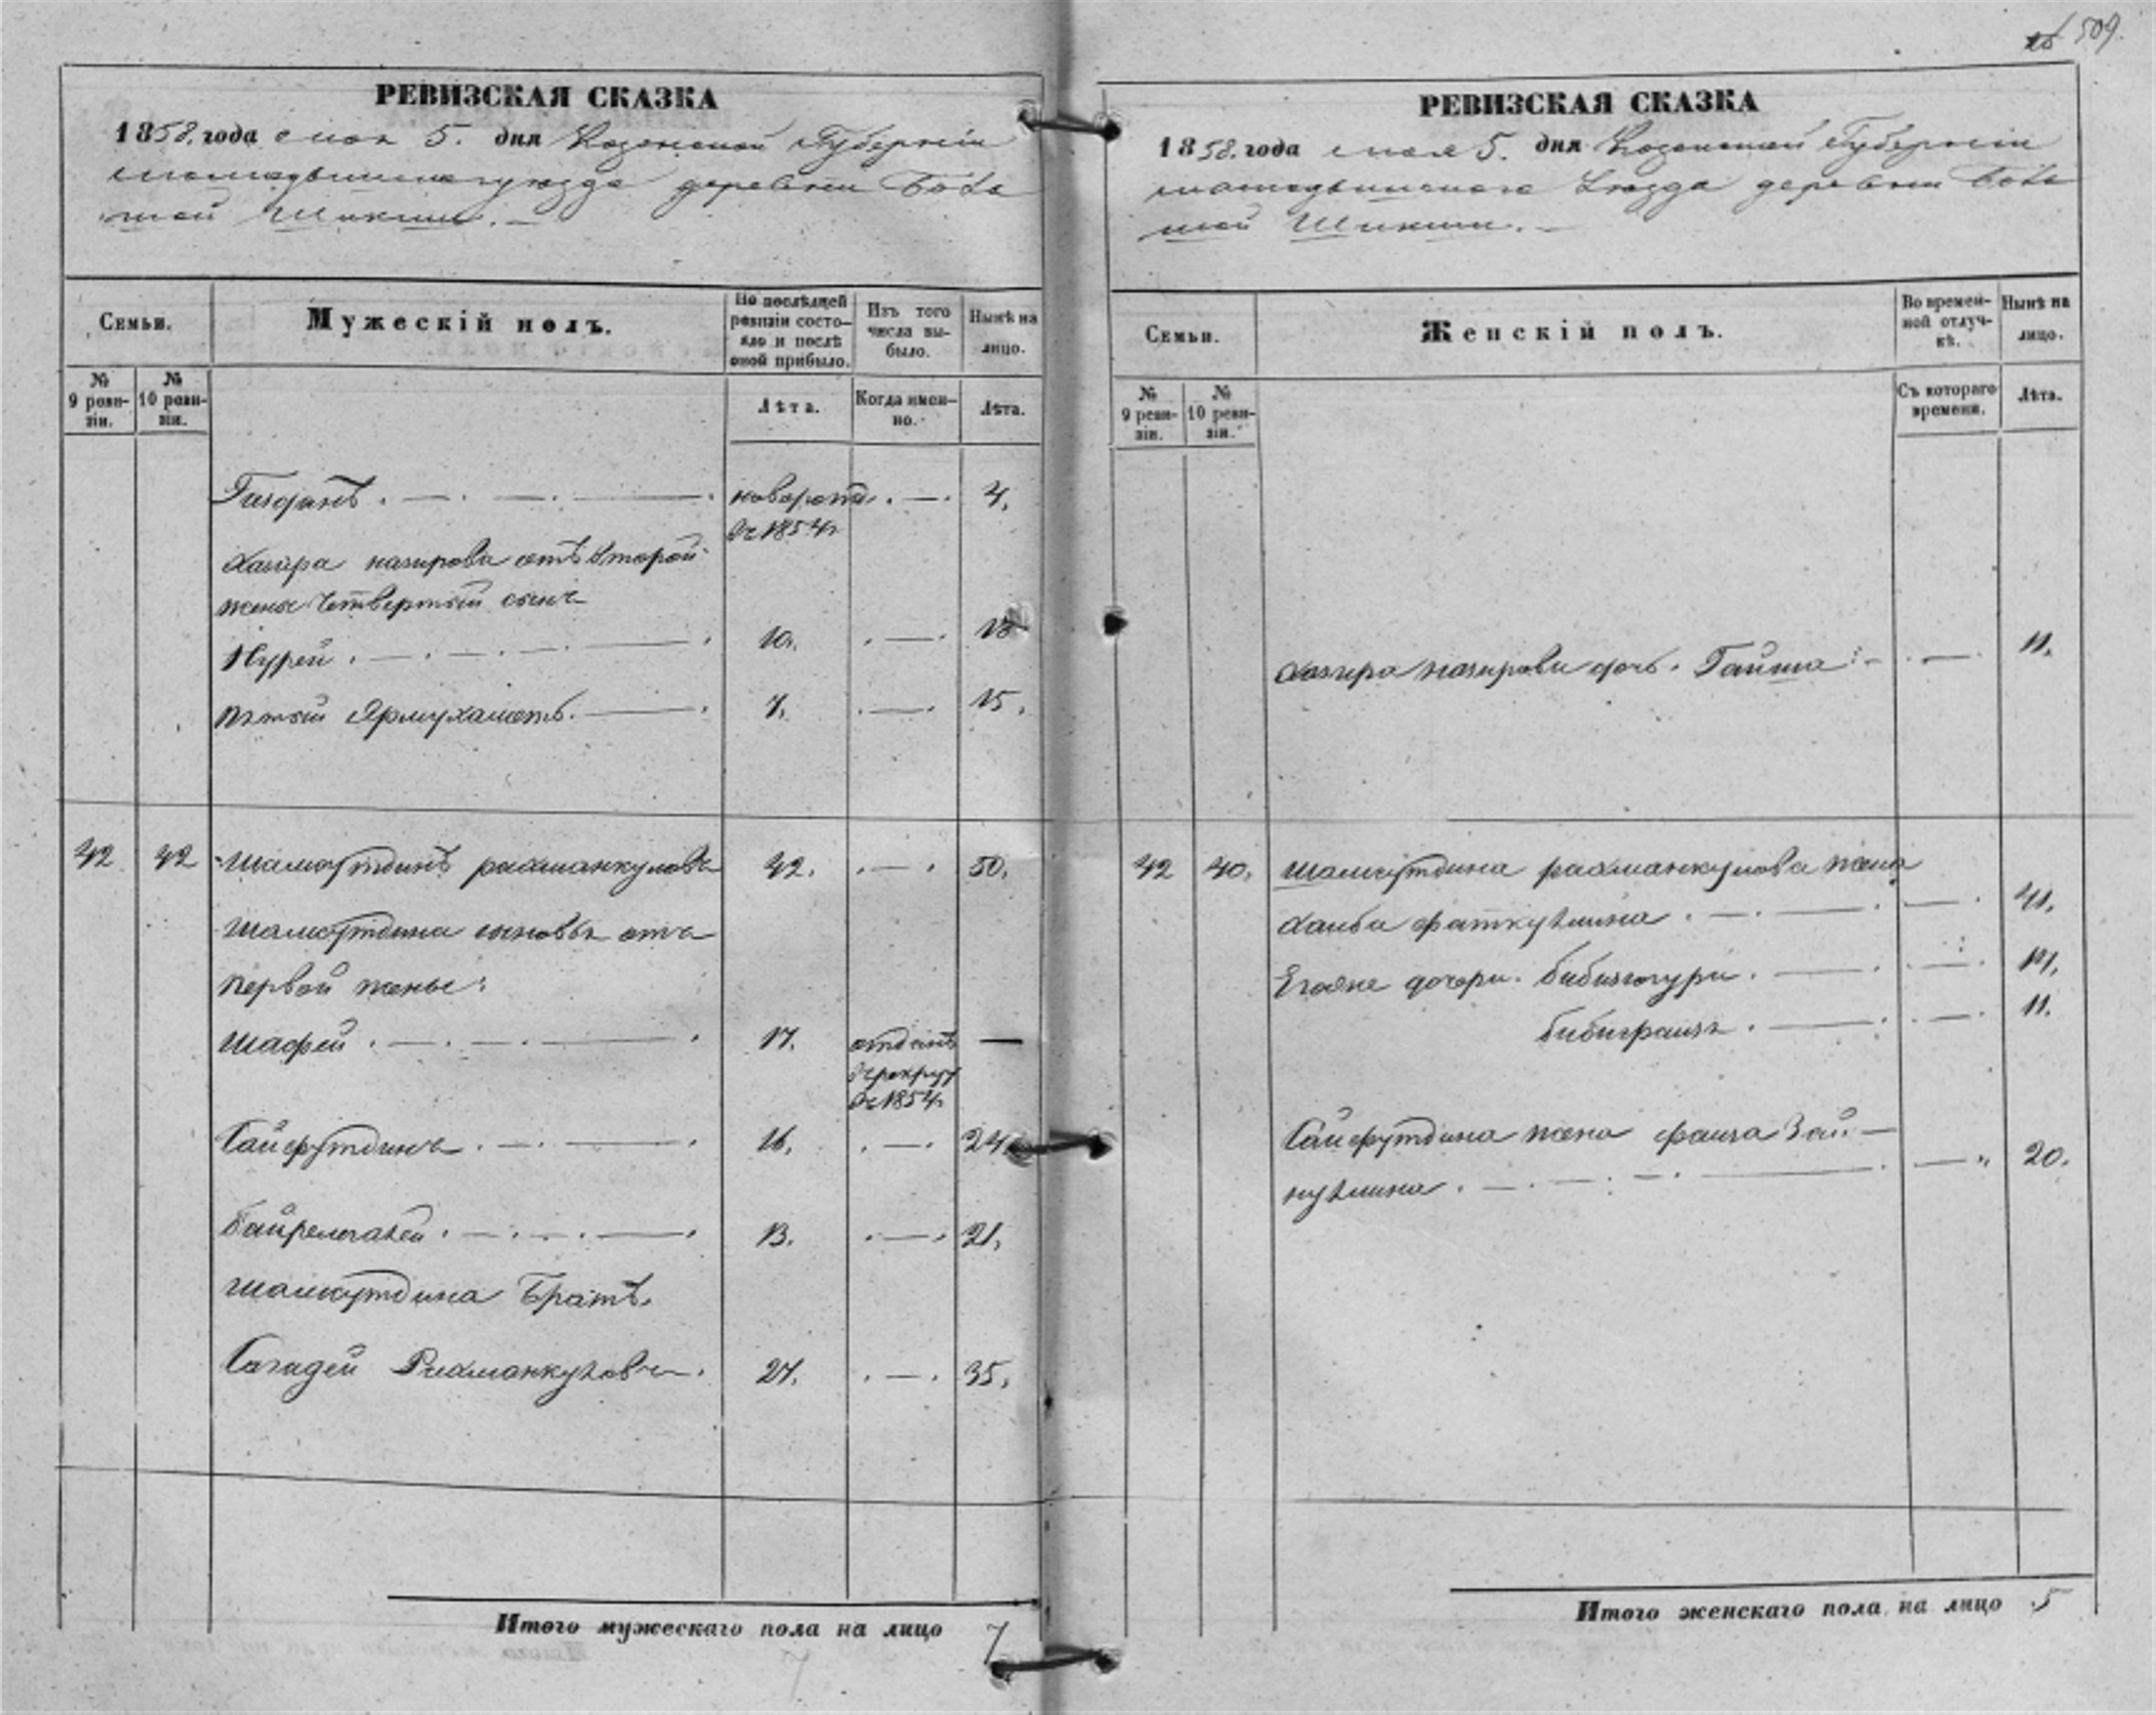 509.
РЕВИЗСКАЯ СКАЗКА
1858. года мая 5. дня Казанской Губерніи
мамадышскаго уезда деревни Боль
шой Шикши.
Семьи.
Мужескій полъ.
По послѣдней ревизіи состояло и послѣ оной прибыло.
Изъ того числа выбыло.
Нынѣ на лицо.
№ 9 ревизіи.
№ 10 ревизіи.
Лѣта.
Когда именно.
Лѣта.
новорожд. 4.
въ 1854г
Хазира назирова отъ второй
жены четвертый сынъ
Нурей 10. 18
пятый Ярмухаметъ. 7. 15.
42 42 Шамсутдинъ рахманкуловъ 42. 50.
Шамсутдина сыновья отъ
первой жены:
Шафей 17. отданъ —
въ рекруты
въ 1854г
Сайфутдинъ 16. 24.
13. 21.
Шамсутдина Братъ.
Сагадей Рахманкуловъ 27. 35.
Итого мужескаго пола на лицо 7
РЕВИЗСКАЯ СКАЗКА
1858. года мая 5. дня Казанской Губерніи
мамадышскаго уезда деревни Боль
шой Шикши.
Семьи.
Женскій полъ.
Во временной отлучкѣ.
Нынѣ на лицо.
№ 9 ревизіи.
№ 10 ревизіи.
Съ котораго времени.
Лѣта.
Хазира назирова дочь. Гайша 11.
42 40. Шамсутдина рахманкулова жена
фаткулина 41.
Его дочери.
11.
Сайфутдина жена фаиза Зай-
нулина 20.
Итого женскаго пола на лицо 5